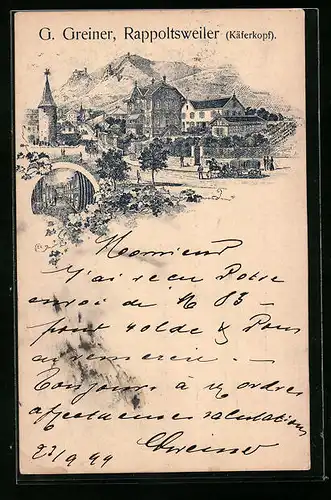 G. Greiner, Rappoltsweiler (Käferkopf).
Monsieur
J'ai reçu Votre
envoi de M 83 –
pour solde & Vous
en remercie. –
Toujours à vos ordres
affectueuses salutations
Greiner
23/9 99